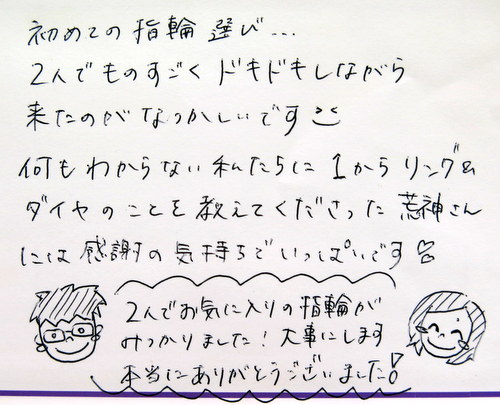 初めての指輪選び...
2人でものすごくドキドキしながら
来たのがなつかしいです
何もわからない私たちに1からリング&
ダイヤのことを教えてくださった荒神さん
には感謝の気持ちでいっぱいです♡
2人でお気に入りの指輪が
みつかりました!大事にします
本当にありがとうございました!